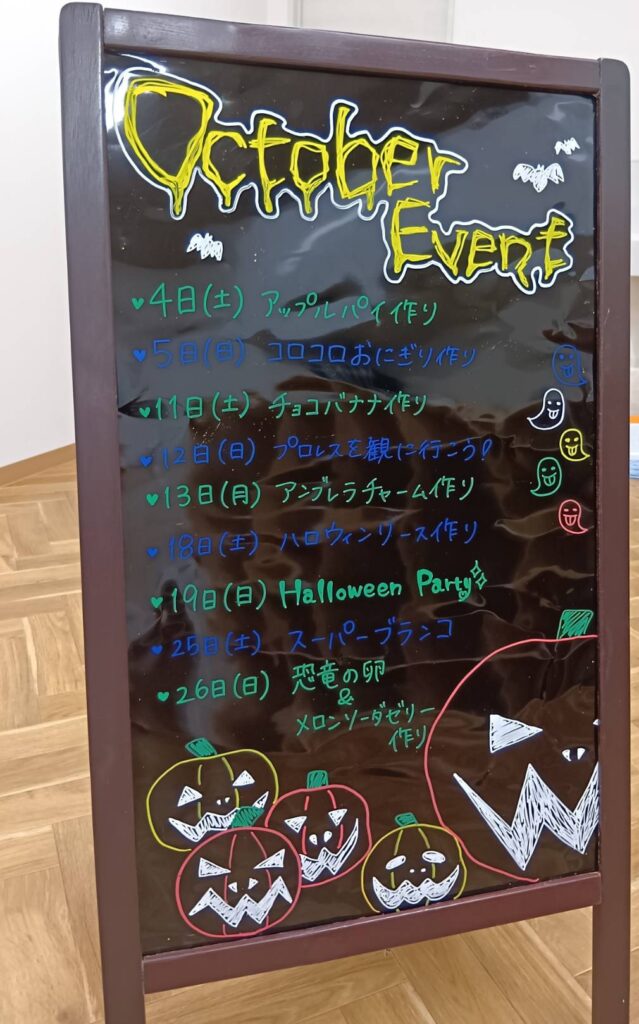 October
Event
♥4日(土) アップルパイ作り
♥5日(日) コロコロおにぎり作り
♥11日(土) チョコバナナ作り
♥12日(日) プロレスを観に行こう!
♥13日(月) アンブレラチャーム作り
♥18日(土) ハロウィンリース作り
♥19日(日) Halloween Party
♥25日(土) スーパーブランコ
♥26日(日) 恐竜の卵
&
メロンソーダゼリー
作り